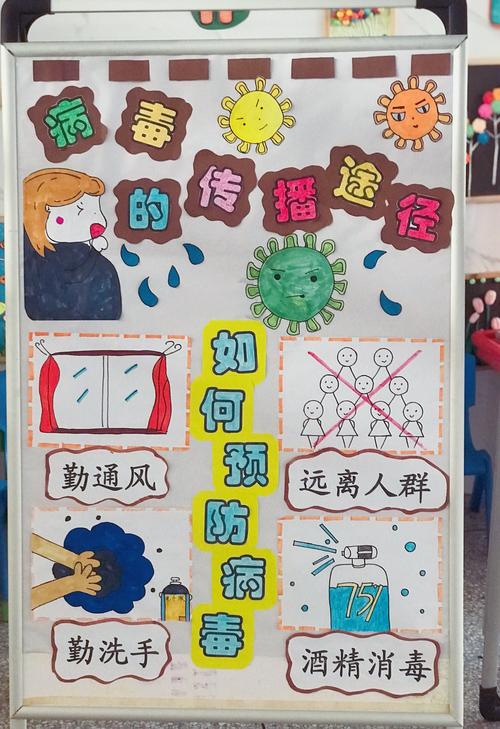 病毒
的传播途径
如何预防病毒
勤通风
远离人群
勤洗手
75%
酒精消毒